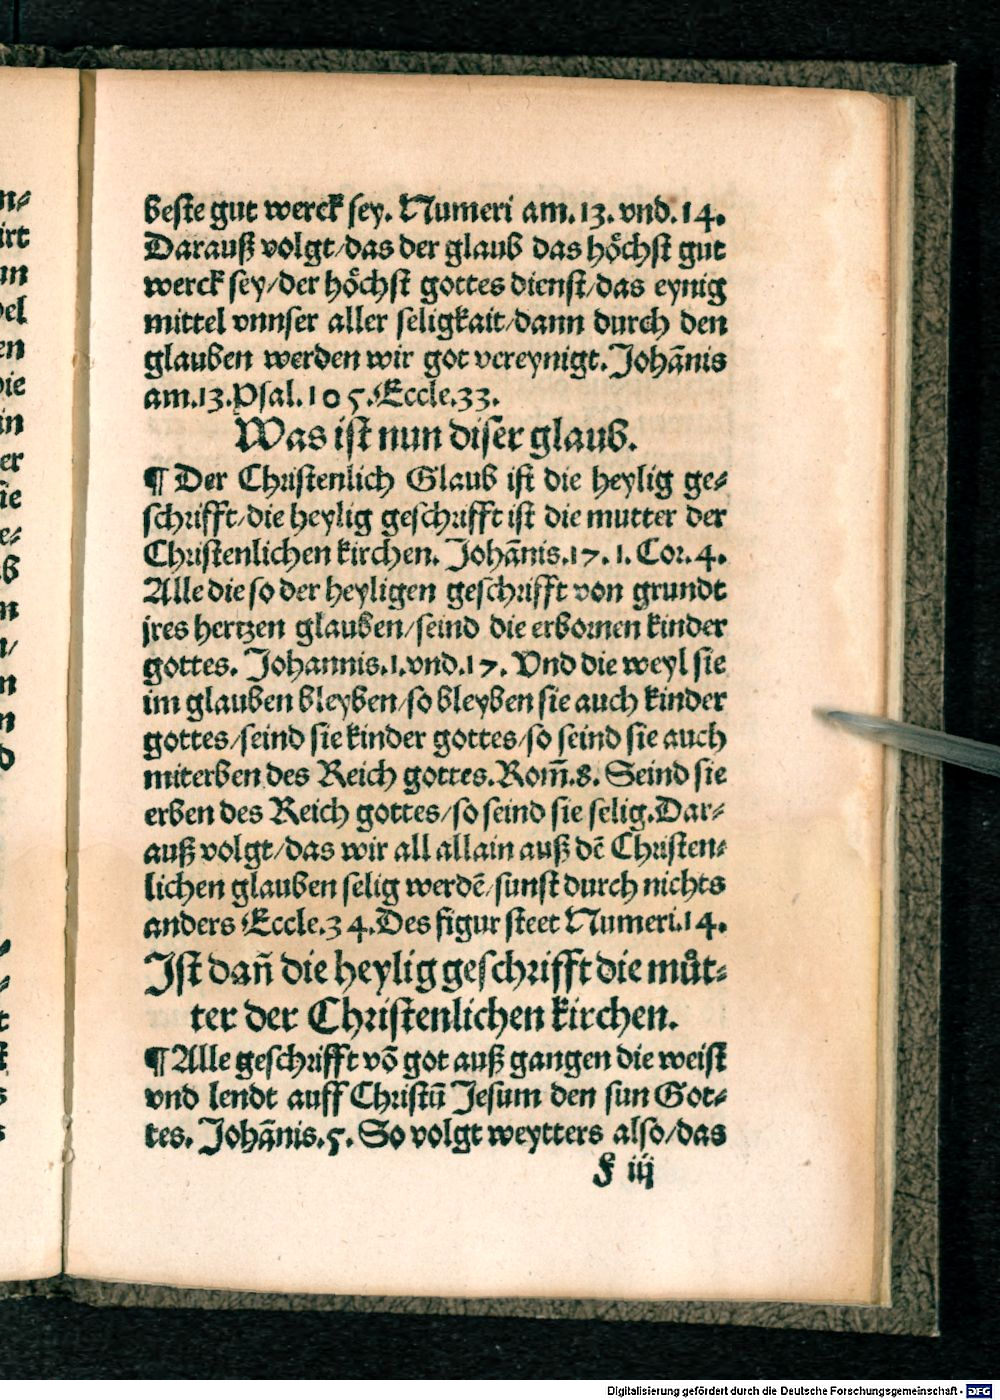 beste gut werck sey. Numeri am. 13. vnd. 14.
Darauß volgt/das der glaub das höchst gut
werck sey/der höchst gottes dienst/das eynig
mittel vnnser aller seligkait/dann durch den
glauben werden wir got vereynigt. Johānis
am. 13. Psal. 105. Eccle. 33.
Was ist nun diser glaub.
¶ Der Christenlich Glaub ist die heylig ge⸗
schrifft/die heylig geschrifft ist die mutter der
Christenlichen kirchen. Johānis. 17. 1. Cor. 4.
Alle die so der heyligen geschrifft von grundt
jres hertzen glauben/seind die erbornen kinder
gottes. Johannis. 1. vnd. 17. Vnd die weyl sie
im glauben bleyben/so bleyben sie auch kinder
gottes/seind sie kinder gottes/so seind sie auch
miterben des Reich gottes. Rom̄. 8. Seind sie
erben des Reich gottes/so seind sie selig. Dar⸗
auß volgt/das wir all allain auß dē Christen⸗
lichen glauben selig werdē/sunst durch nichts
anders Eccle. 34. Des figur steet Numeri. 14.
Ist dan̄ die heylig geschrifft die můt⸗
ter der Christenlichen kirchen.
¶ Alle geschrifft vō got auß gangen die weist
vnd lendt auff Christū Jesum den sun Got⸗
tes. Johānis. 5. So volgt weytters also/das
F iij
Digitalisierung gefördert durch die Deutsche Forschungsgemeinschaft - DFG